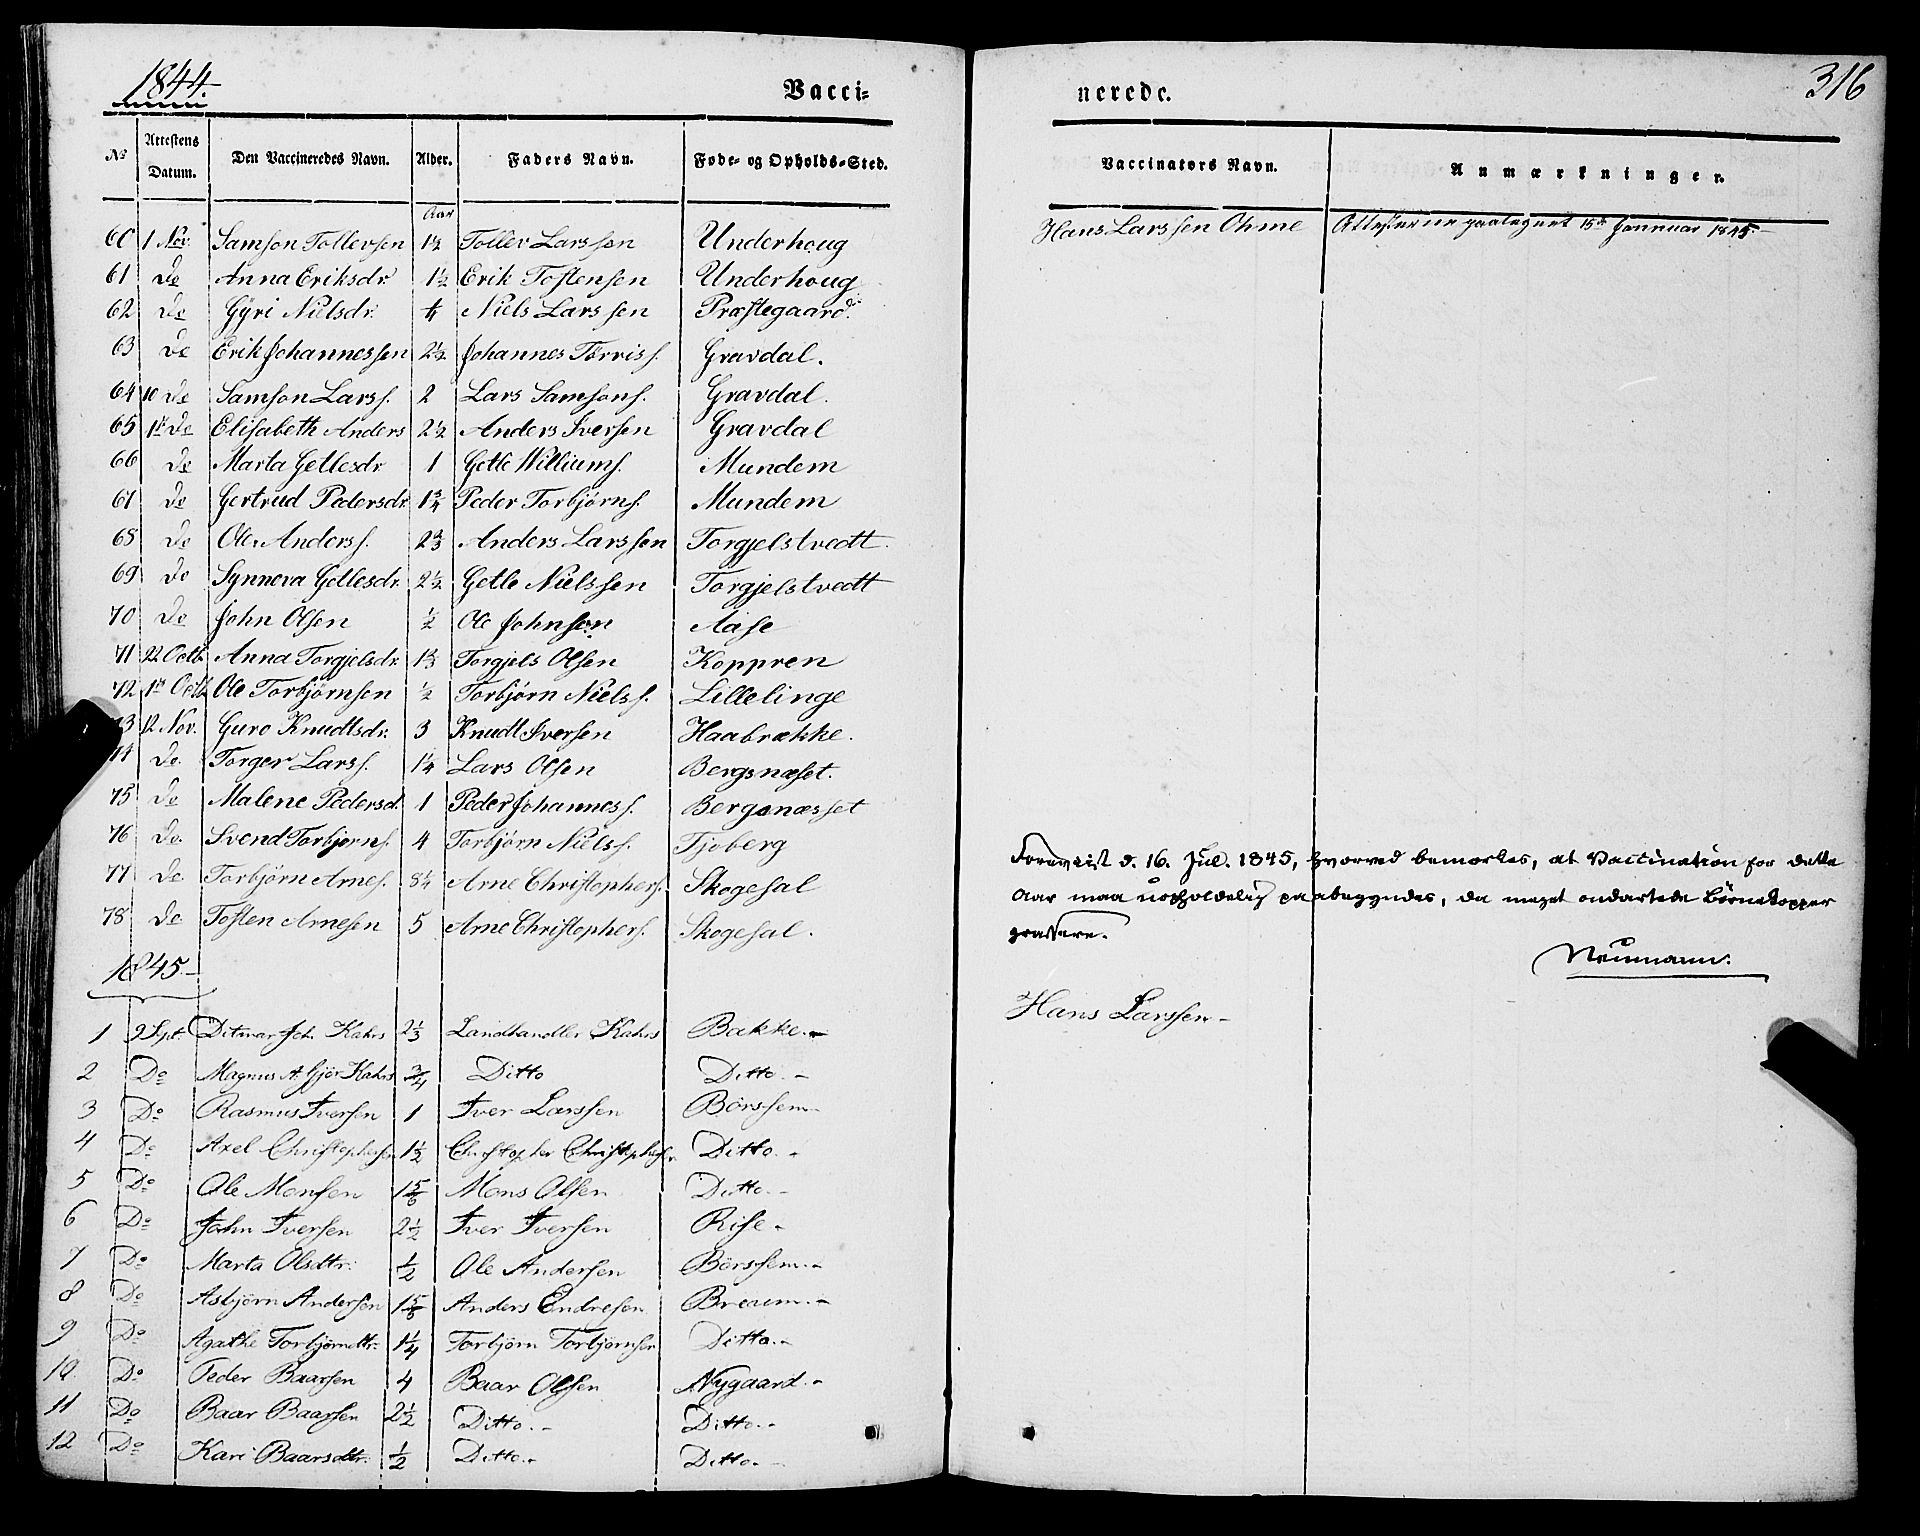 1844.
Vacci-
nerede.
316
No Attestens Datum. Den Vaccineredes Navn. Alder. Faders Navn. Føde- og Opholds-Sted. Vaccinators Navn. Anmærkninger.
Aar
60 1 Nov. Samson Tollevsen 1½ Tollev Larssen Underhoug Hans Larssen Ohme Attesterne paategnet 15de Januar 1845.
61 do Anna Eriksdr. 1½ Erik Tostensen Underhoug
62 do Gyri Nielsdr. Niels Larssen Præstegaard.
63 do Erik Johannessen 2½ Johannes Torriss. Gravdal.
64 10 do Samson Larss. 2 Lars Samsons. Gravdal.
65 do Elisabeth Anders 2½ Anders Iversen Gravdal
66 do Marta Getlesdr 1 Getle Williams. Mundem
67 do Gertrud Pedersdr. 1¾ Peder Torbjørns. Mundem
68 do Ole Anderss. 2⅔ Anders Larssen Torgjelstvedt.
69 do Synneva Getlesdr. 2½ Getle Nielssen Torgjelstvedt
70 do John Olsen ½ Ole Johnson Aase
71 22 Octb Anna Torgjelsdr. Torgjels Olsen Koppren
72 Octb Ole Torbjørnsen ½ Torbjørn Nielss. Lillelinge
73 12 Nov. Guro Knudtsdr. 3 Knudt Iversen Haabrække.
74 do. Torger Larss. 1¼ Lars Olsen Bergsnæset.
75 do Malene Pedersd. 1 Peder Johanness. Bergsnæsset
76 do. Svend Torbjørns. 4 Torbjørn Nielss. Tjoberg
77 do Torbjörn Arnes. 8¼ Arne Christophers. Skogesal
78 do Tosten Arnesen 5 Arne Christophers. Skogesal.
Foreviist d. 16. Jul. 1845, hvorved bemærkes, at Vaccination for dette
Aar maa uopholdelig paabegyndes, da meget ondartede Börnekopper
grassere.
Neumann.
1845.
1 9 Spt. Ditmar Joh. Kahrs 2⅓ Landhandler Kahrs Bakke. Hans Larssen
2 Do Magnus A. Gjör Kahrs ¾ Ditto Ditto.
3 Do Rasmus Iversen 1 Iver Larssen Börssem
4 Do Axel Christophersen 1½ Christopher Christophers. Ditto.
5 Do Ole Monsen 1⅚ Mons Olsen Ditto.
6 Do John Iversen 2½ Iver Iversen Rise.
7 Do Marta Olsdtr. ½ Ole Andersen Börssem.
8 Do Asbjørn Andersen 1⅚ Anders Endresen Breum.
9 Do Agathe Torbjörndtr. 1¼ Torbjörn Torbjörnsen Ditto.
10. Do Peder Baarsen 4 Baar Olsen Nygaard.
11 Do Baar Baarsen 2½ Ditto. Ditto.
12 Do Kari Baarsdtr. ½ Ditto. Ditto.